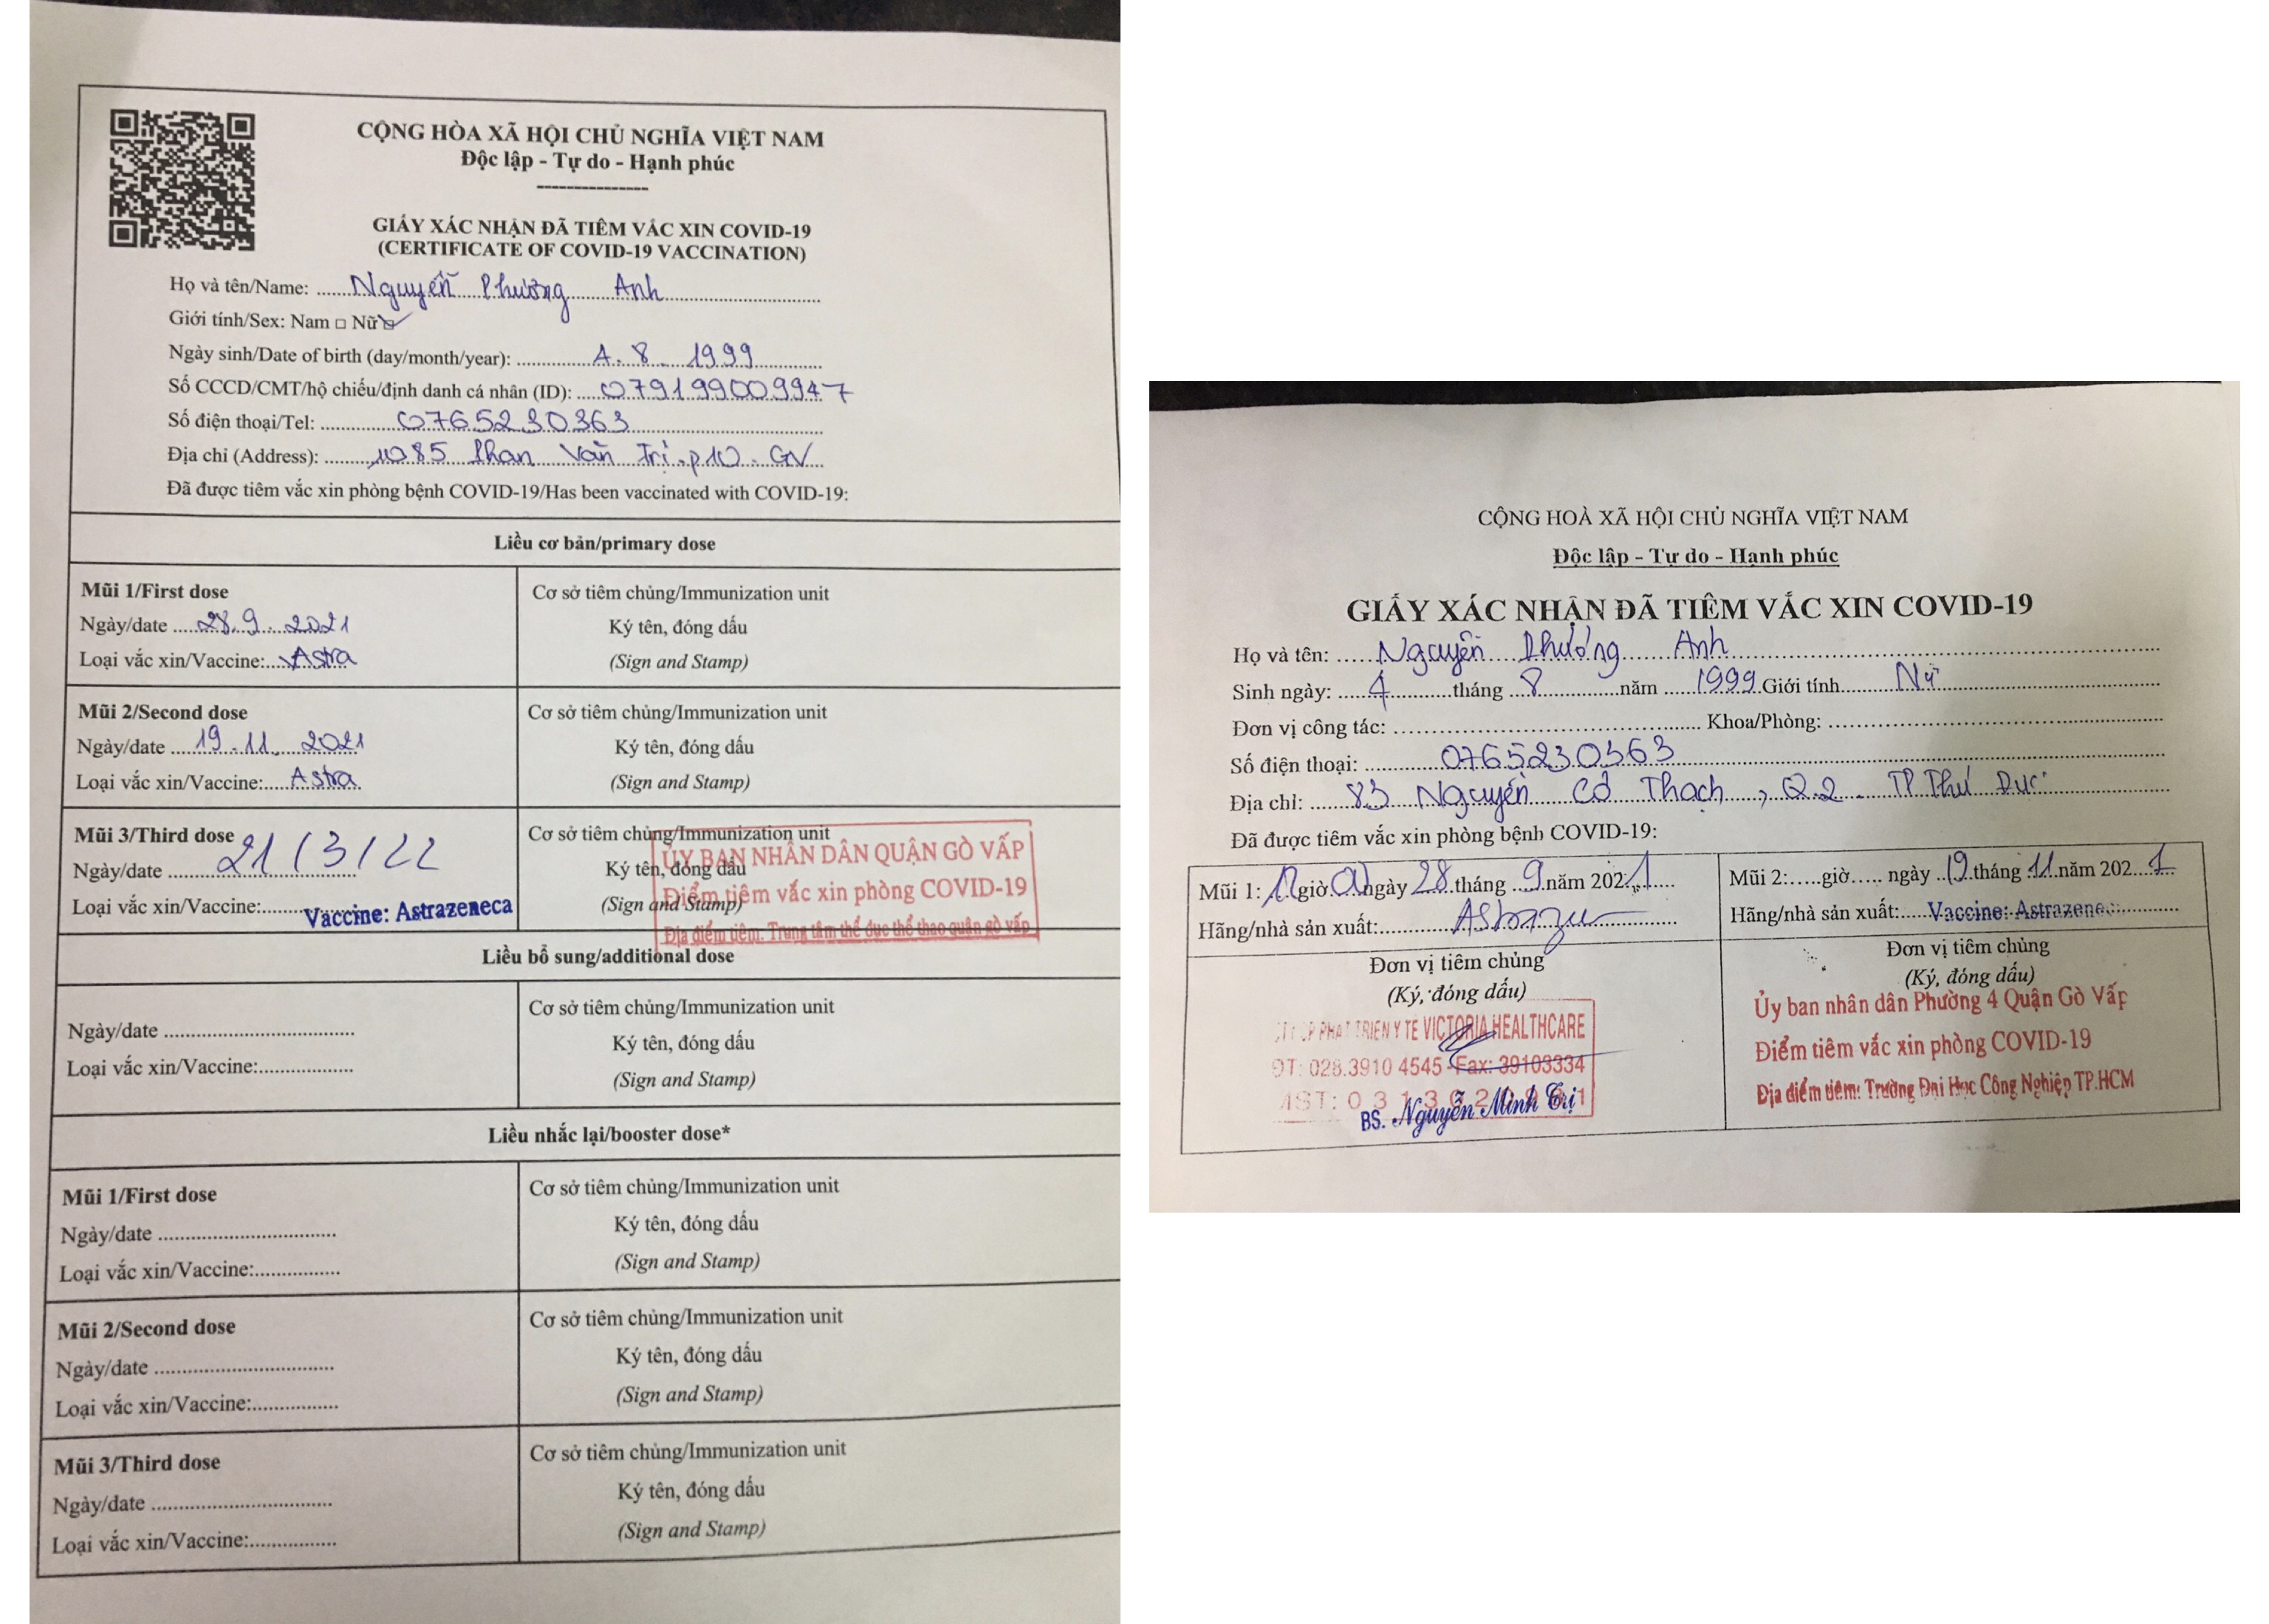 CỘNG HÒA XÃ HỘI CHỦ NGHĨA VIỆT NAM
Độc lập - Tự do - Hạnh phúc
GIẤY XÁC NHẬN ĐÃ TIÊM VẮC XIN COVID-19
(CERTIFICATE OF COVID-19 VACCINATION)
Họ và tên/Name: Nguyễn Phương Anh
Giới tính/Sex: Nam □ Nữ ☑
Ngày sinh/Date of birth (day/month/year): 4. 8. 1999
Số CCCD/CMT/hộ chiếu/định danh cá nhân (ID): 079199009947
Số điện thoại/Tel: 0765230363
Địa chỉ (Address): 1085 Phan Văn Trị. p10. GV
Đã được tiêm vắc xin phòng bệnh COVID-19/Has been vaccinated with COVID-19:
Liều cơ bản/primary dose
Mũi 1/First dose
Ngày/date 28.9.2021
Loại vắc xin/Vaccine: Astra
Cơ sở tiêm chủng/Immunization unit
Ký tên, đóng dấu
(Sign and Stamp)
Mũi 2/Second dose
Ngày/date 19.11.2021
Loại vắc xin/Vaccine: Astra
Cơ sở tiêm chủng/Immunization unit
Ký tên, đóng dấu
(Sign and Stamp)
Mũi 3/Third dose
Ngày/date 21/3/22
Loại vắc xin/Vaccine: Vaccine: Astrazeneca
Cơ sở tiêm chủng/Immunization unit
Ký tên, đóng dấu
(Sign and Stamp)
ỦY BAN NHÂN DÂN QUẬN GÒ VẤP
Điểm tiêm vắc xin phòng COVID-19
Địa điểm tiêm. Trung tâm thể dục thể thao quận gò vấp
Liều bổ sung/additional dose
Ngày/date
Loại vắc xin/Vaccine:
Cơ sở tiêm chủng/Immunization unit
Ký tên, đóng dấu
(Sign and Stamp)
Liều nhắc lại/booster dose*
Mũi 1/First dose
Ngày/date
Loại vắc xin/Vaccine:
Cơ sở tiêm chủng/Immunization unit
Ký tên, đóng dấu
(Sign and Stamp)
Mũi 2/Second dose
Ngày/date
Loại vắc xin/Vaccine:
Cơ sở tiêm chủng/Immunization unit
Ký tên, đóng dấu
(Sign and Stamp)
Mũi 3/Third dose
Ngày/date
Loại vắc xin/Vaccine:
Cơ sở tiêm chủng/Immunization unit
Ký tên, đóng dấu
(Sign and Stamp)
CỘNG HOÀ XÃ HỘI CHỦ NGHĨA VIỆT NAM
Độc lập - Tự do - Hạnh phúc
GIẤY XÁC NHẬN ĐÃ TIÊM VẮC XIN COVID-19
Họ và tên: Nguyễn Phương Anh
Sinh ngày: 4 tháng 8 năm 1999 Giới tính Nữ
Đơn vị công tác: Khoa/Phòng:
Số điện thoại: 0765230363
Địa chỉ: 83 Nguyễn Cơ Thạch, Q.2. TP Thủ Đức
Đã được tiêm vắc xin phòng bệnh COVID-19:
Mũi 1: giờ ngày 28 tháng 9 năm 2021
Hãng/nhà sản xuất:
Đơn vị tiêm chủng
(Ký, đóng dấu)
PHÁT TRIỂN Y TẾ VICTORIA HEALTHCARE
ĐT: 028.3910 4545 - Fax: 39103334
MST:
BS. Nguyễn Minh Trị
Mũi 2: giờ ngày 19 tháng 11 năm 2021
Hãng/nhà sản xuất: Vaccine: Astrazenec
Đơn vị tiêm chủng
(Ký, đóng dấu)
Ủy ban nhân dân Phường 4 Quận Gò Vấp
Điểm tiêm vắc xin phòng COVID-19
Địa điểm tiêm: Trường Đại Học Công Nghiệp TP.HCM